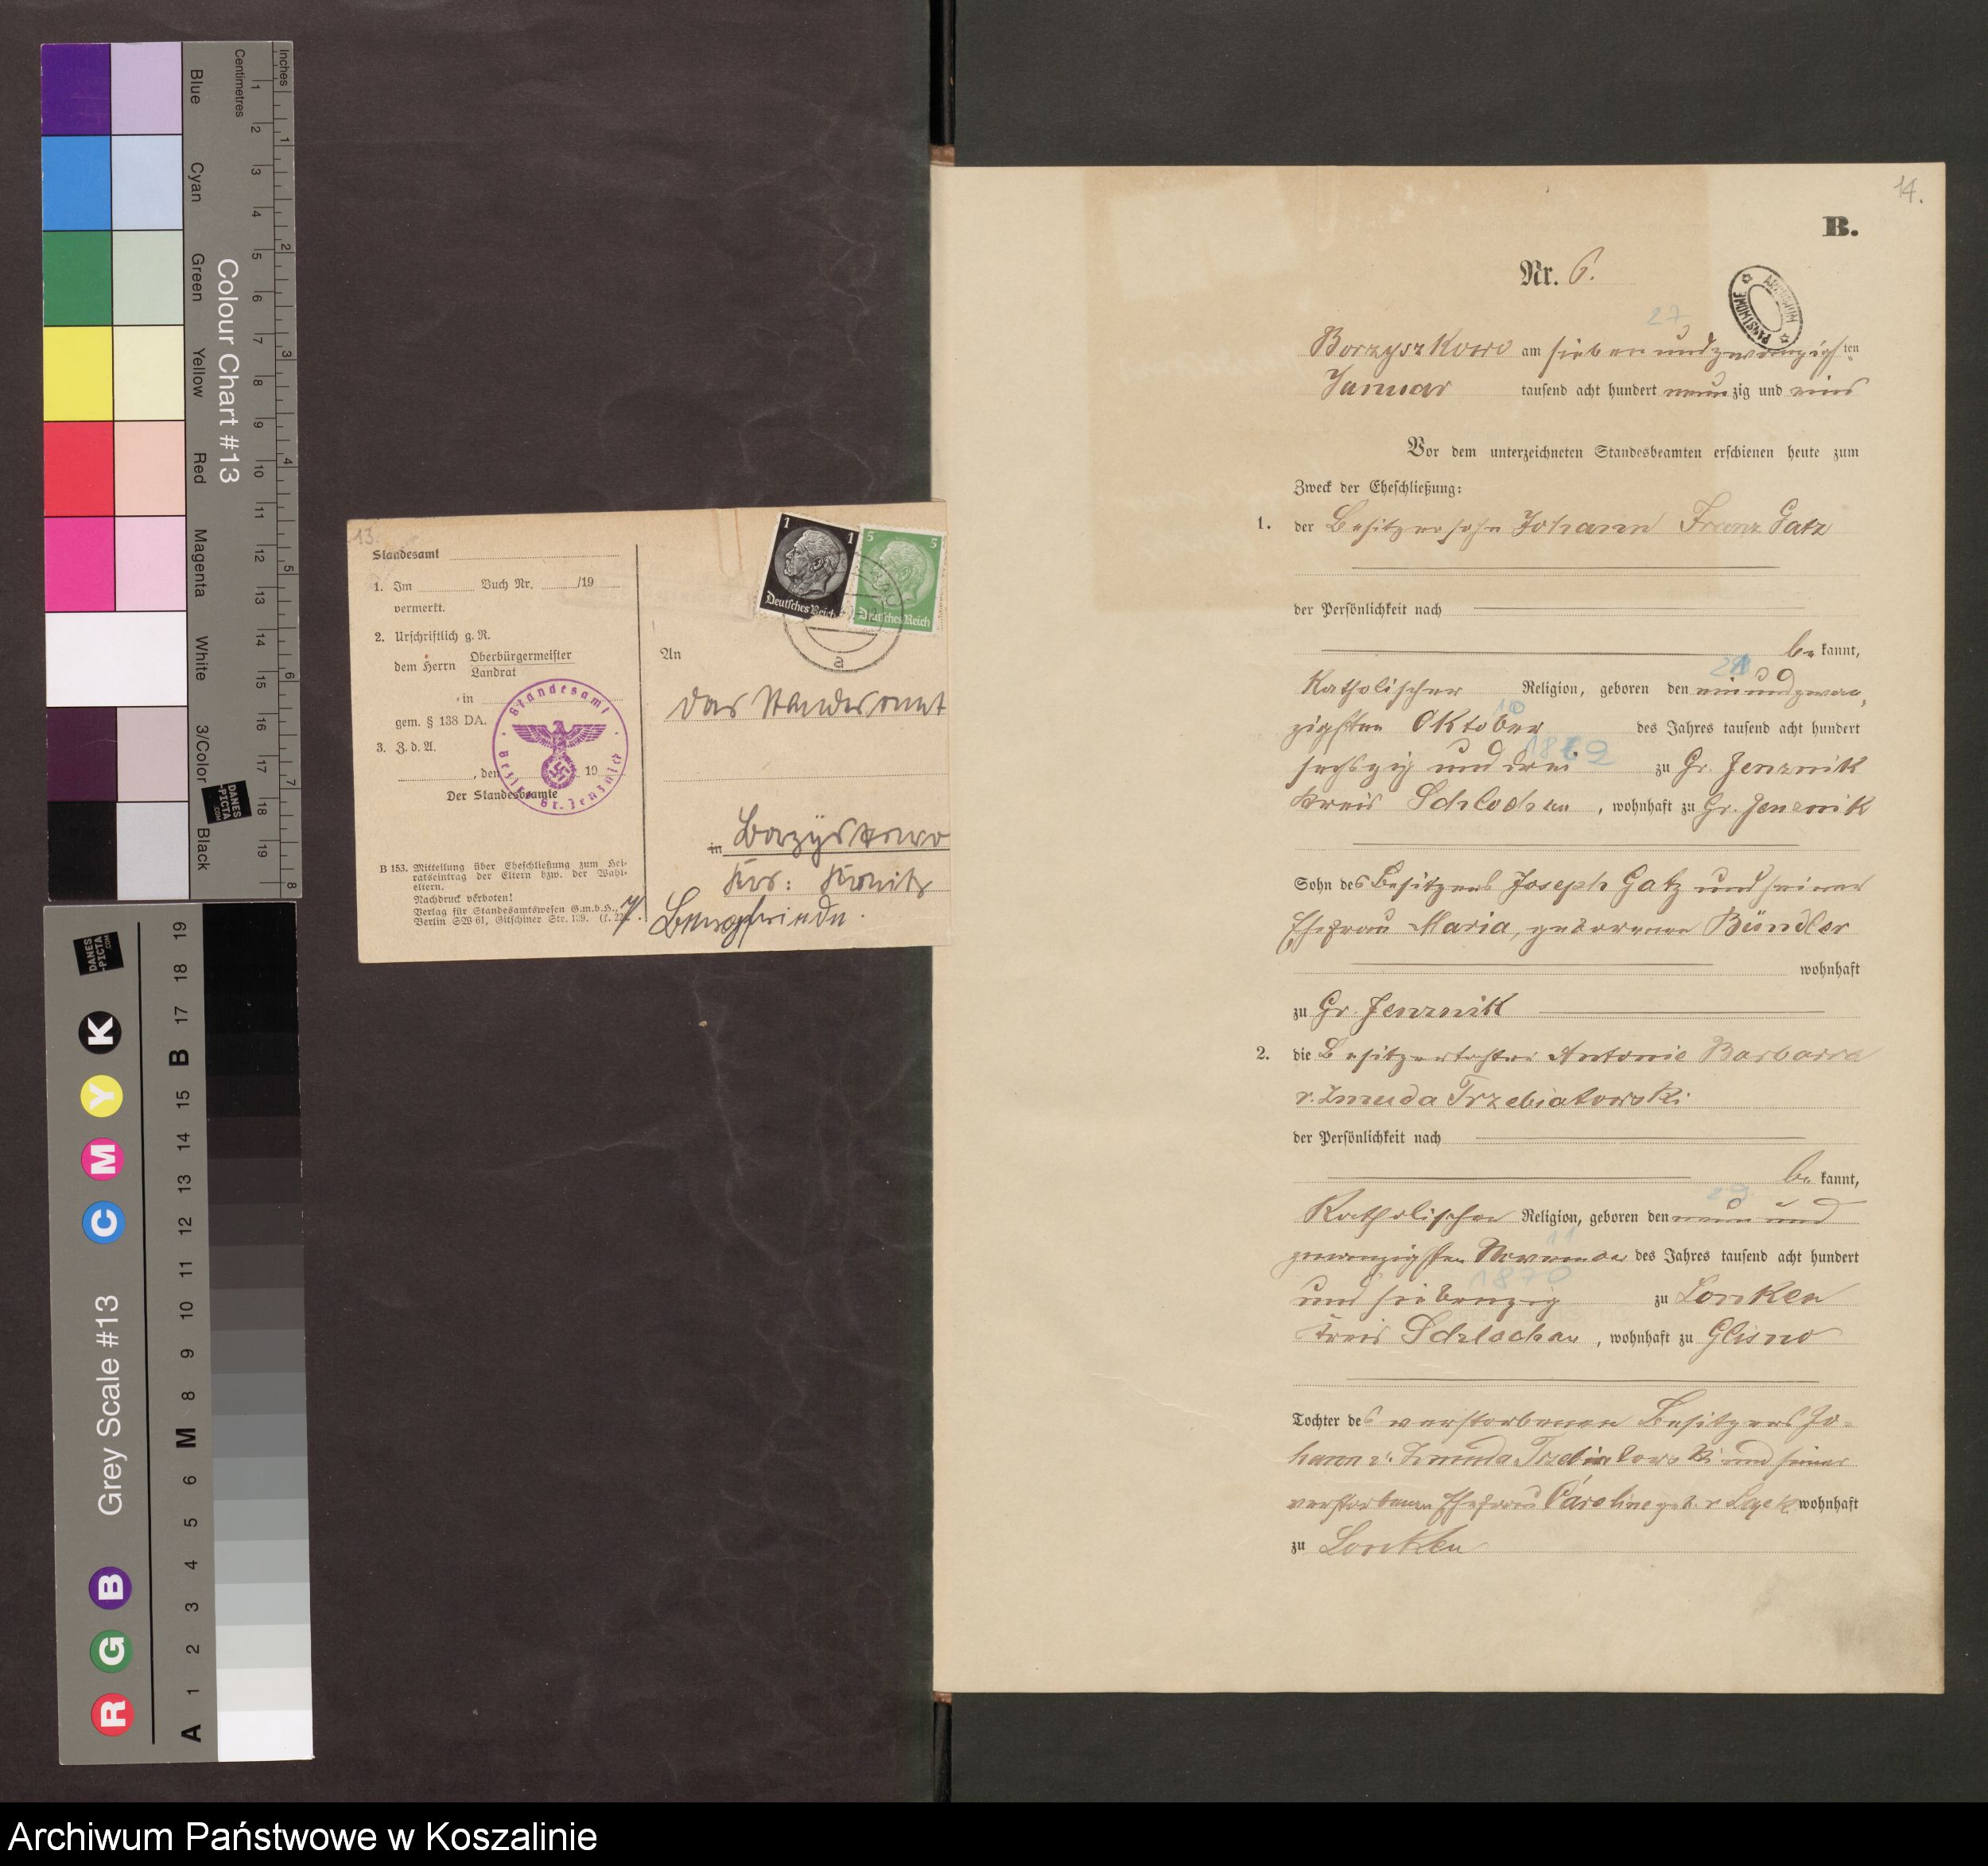 Inches
Centimetres
Blue
Cyan
Green
Yellow
Red
Magenta
White
3/Color
Black
Colour Chart #13
1 2 3 4 5 6 7 8 9 10 11 12 13 14 15 16 17 18 19
1 2 3 4 5 6 7 8
DANES
-PICTA
.COM
DANES
-PICTA
.COM
Grey Scale #13
R G B C M Y K
A 1 2 3 4 5 6 M 8 9 10 11 12 13 14 15 B 17 18 19
13.
Standesamt
1. Im Buch Nr. /19
vermerkt.
2. Urschriftlich g. R.
dem Herrn Oberbürgermeister
Landrat
in
gem. § 138 DA.
3. Z. d. A.
, den 19
Der Standesbeamte
Standesamt
Bezirk Gr. Jenznick
B 153. Mitteilung über Eheschließung zum Hei-
ratseintrag der Eltern bzw. der Wahl-
eltern.
Nachdruck verboten!
Verlag für Standesamtswesen G.m.b.H.,
Berlin SW 61, Gitschiner Str. 109.
1 1
Deutsches Reich
5 5
Deutsches Reich
a
An
das Standesamt
in
Krs: Konitz
14.
B.
Nr. 6.
27
Borzyszkowo am sieben und zwanzigsten
Januar tausend acht hundert neunzig und eins
Vor dem unterzeichneten Standesbeamten erschienen heute zum
Zweck der Eheschließung:
1. der Besitzersohn Johann Franz Gatz
der Persönlichkeit nach
be kannt,
21
Katholischer Religion, geboren den ein und zwan-
10
zigsten Oktober des Jahres tausend acht hundert
sechszig und drei zu Gr. Jenznik
Kreis Schlochau, wohnhaft zu Gr. Jenznik
Sohn des Besitzers Joseph Gatz und seiner
Ehefrau Maria, geborenen Bündler
wohnhaft
zu Gr. Jenznik
2. die Besitzertochter Antonie Barbara
v. Zmuda Trzebiatowski
der Persönlichkeit nach
be kannt,
29.
Katholischer Religion, geboren den neun und
11
zwanzigsten November des Jahres tausend acht hundert
1870
und siebenzig zu Lonken
Kreis Schlochau, wohnhaft zu Glisno
Tochter des verstorbenen Besitzers Jo-
hann v. Zmuda Trzebiatowski und seiner
verstorbenen Ehefrau Caroline geb. v wohnhaft
zu Lonken
Archiwum Państwowe w Koszalinie